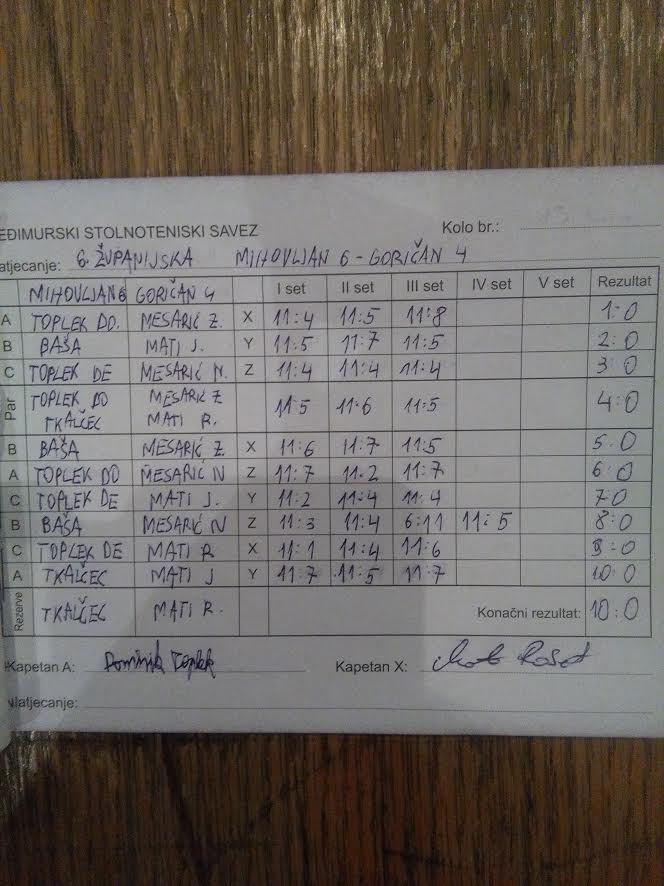 EĐIMURSKI STOLNOTENISKI SAVEZ Kolo br.:
atjecanje: 6. ŽUPANIJSKA MIHOVLJAN 6 - GORIČAN 4
MIHOVLJAN 6 GORIČAN 4 I set II set III set IV set V set Rezultat
A TOPLEK DO. MESARIĆ Z. X 11:4 11:5 11:8 1:0
B BAŠA MATI J. Y 11:5 11:7 11:5 2:0
C TOPLEK DE MESARIĆ N. Z 11:4 11:4 11:4 3:0
Par TOPLEK DO MESARIĆ Z 11:5 11:6 11:5 4:0
TKALČEC MATI R.
B BAŠA MESARIĆ Z X 11:6 11:7 11:5 5:0
A TOPLEK DO MESARIĆ N Z 11:7 11:2 11:7 6:0
C TOPLEK DE MATI J. Y 11:2 11:4 11:4 7:0
B BAŠA MESARIĆ N Z 11:3 11:4 6:11 11:5 8:0
C TOPLEK DE MATI R X 11:1 11:4 11:6 9:0
A TKALČEC MATI J Y 11:7 11:5 11:7 10:0
Rezerve TKALČEC MATI R. Konačni rezultat: 10:0
Kapetan A: Dominik Toplek Kapetan X:
Natjecanje: